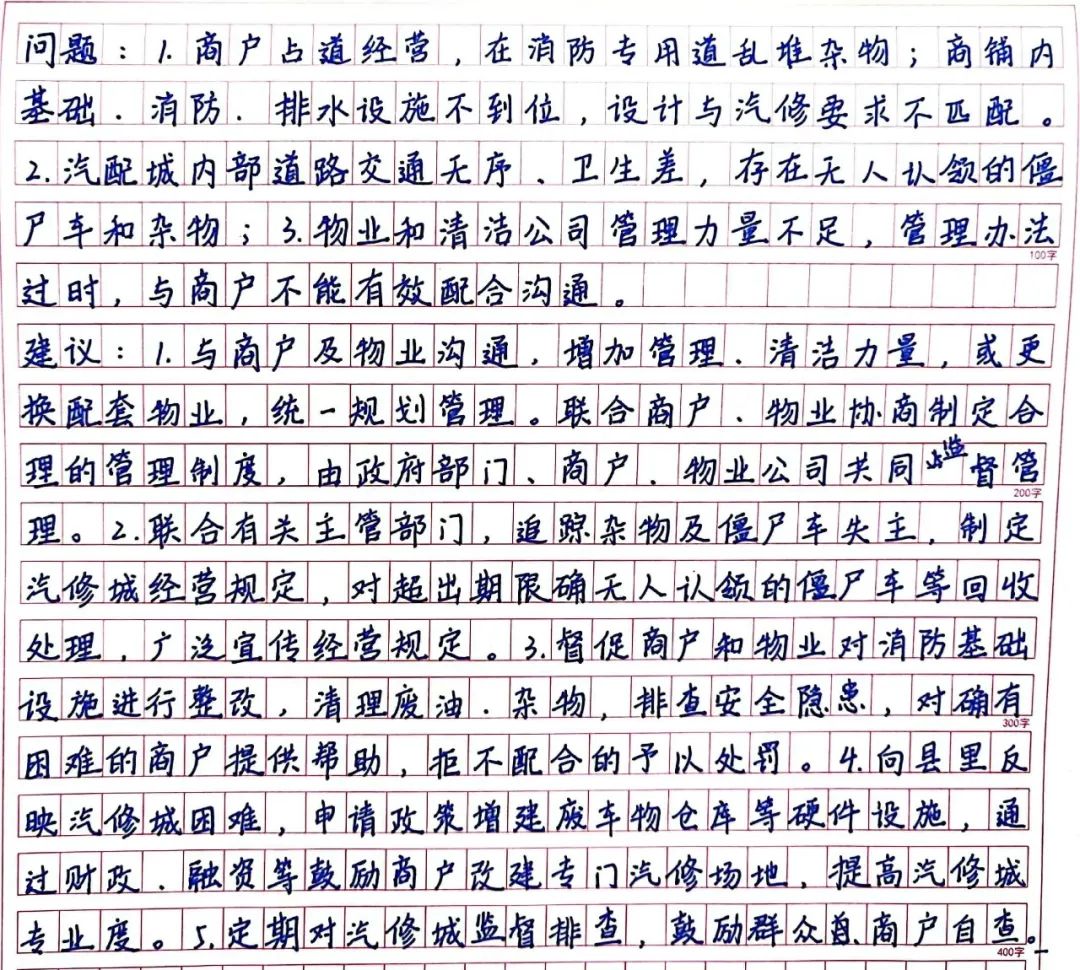 问题：1.商户占道经营，在消防专用道乱堆杂物；商铺内
基础、消防、排水设施不到位，设计与汽修要求不匹配。
2.汽配城内部道路交通无序、卫生差，存在无人认领的僵
尸车和杂物；3.物业和清洁公司管理力量不足，管理办法
100字
过时，与商户不能有效配合沟通。
建议：1.与商户及物业沟通，增加管理、清洁力量，或更
换配套物业，统一规划管理。联合商户、物业协商制定合
理的管理制度，由政府部门、商户、物业公司共同监督管
200字
理。2.联合有关主管部门，追踪杂物及僵尸车失主，制定
汽修城经营规定，对超出期限确无人认领的僵尸车等回收
处理，广泛宣传经营规定。3.督促商户和物业对消防基础
设施进行整改，清理废油、杂物，排查安全隐患，对确有
300字
困难的商户提供帮助，拒不配合的予以处罚。4.向县里反
映汽修城困难，申请政策增建废车物仓库等硬件设施，通
过财政、融资等鼓励商户改建专门汽修场地，提高汽修城
专业度。5.定期对汽修城监督排查，鼓励群众、商户自查。
400字